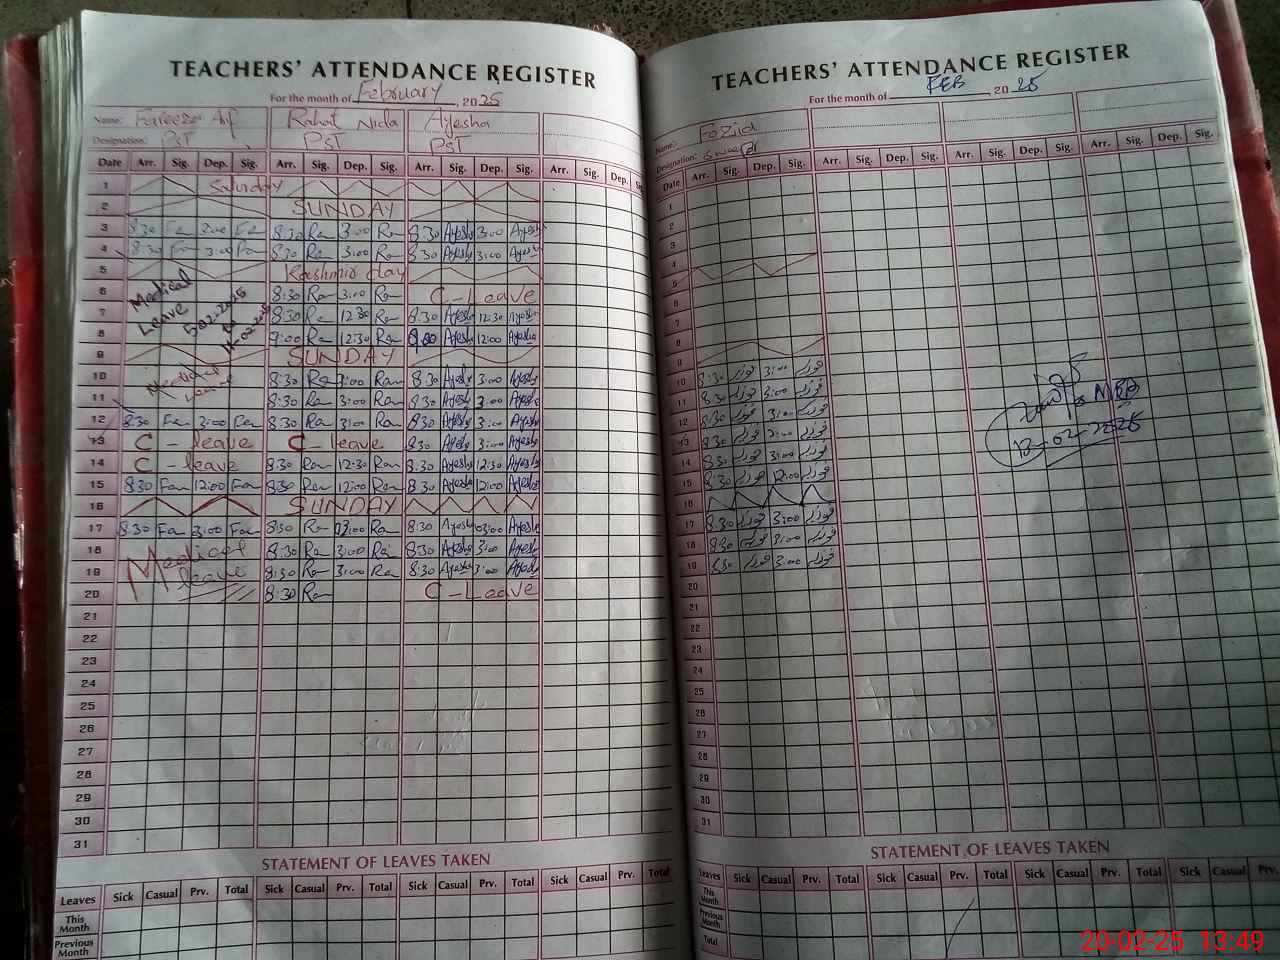 TEACHERS' ATTENDANCE REGISTER
For the month of February, 2025
Name: Rahat Nida Ayesha
Designation: PST PST PST
Date Arr. Sig. Dep. Sig. Arr. Sig. Dep. Sig. Arr. Sig. Dep. Sig. Arr. Sig. Dep.
1 Saturday
2 SUNDAY
3 8:30 Fa 3:00 Fa 8:30 Ra 3:00 Ra 8:30 Ayesha 3:00 Ayesha
4 8:30 Fa 3:00 Fa 8:30 Ra 3:00 Ra 8:30 Ayesha 3:00 Ayesha
5 Kashmir day
6 Medical Leave 8:30 Ra 3:00 Ra C-Leave
7 8:30 Ra 12:30 Ra 8:30 Ayesha 12:30 Ayesha
8 9:00 Ra 12:30 Ra Ayesha 12:00 Ayesha
9 SUNDAY
10 Medical Leave 8:30 Ra 3:00 Ra 8:30 Ayesha 3:00 Ayesha
11 8:30 Ra 3:00 Ra 8:30 Ayesha 3:00 Ayesha
12 8:30 Fa 3:00 Fa 8:30 Ra 3:00 Ra 8:30 Ayesha 3:00 Ayesha
13 C - leave C - leave 8:30 Ayesha 3:00 Ayesha
14 C - leave 8:30 Ra 12:30 Ra 8:30 Ayesha 12:30 Ayesha
15 8:30 Fa 12:00 Fa 8:30 Ra 12:00 Ra 8:30 Ayesha 12:00 Ayesha
16 SUNDAY
17 8:30 Fa 3:00 Fa 8:30 Ra 03:00 Ra 8:30 Ayesha 03:00 Ayesha
18 Medical 8:30 Ra 3:00 Ra 8:30 Ayesha 3:00 Ayesha
19 leave 8:30 Ra 3:00 Ra 8:30 Ayesha 3:00 Ayesha
20 8:30 Ra C-Leave
21
22
23
24
25
26
27
28
29
30
31
STATEMENT OF LEAVES TAKEN
Leaves Sick Casual Prv. Total Sick Casual Prv. Total Sick Casual Prv. Total Sick Casual Prv. Total
This Month
Previous Month
TEACHERS' ATTENDANCE REGISTER
For the month of FEB, 2025
Name: Fozia
Designation:
Date Arr. Sig. Dep. Sig. Arr. Sig. Dep. Sig. Arr. Sig. Dep. Sig. Arr. Sig. Dep. Sig.
1
2
3
4
5
6
7
8
9
10 8:30 فوزیہ 3:00 فوزیہ
11 8:30 فوزیہ 3:00 فوزیہ
12 8:30 فوزیہ 3:00 فوزیہ
13 8:30 فوزیہ 3:00 فوزیہ
14 8:30 فوزیہ 3:00 فوزیہ
15 8:30 فوزیہ 12:00 فوزیہ
16
17 8:30 فوزیہ 3:00 فوزیہ
18 8:30 فوزیہ 3:00 فوزیہ
19 8:30 فوزیہ 3:00 فوزیہ
20
21
22
23
24
25
26
27
28
29
30
31
12-02-2025
STATEMENT OF LEAVES TAKEN
Leaves Sick Casual Prv. Total Sick Casual Prv. Total Sick Casual Prv. Total Sick Casual Prv.
This Month
Previous Month
Total
20-02-25 13:49